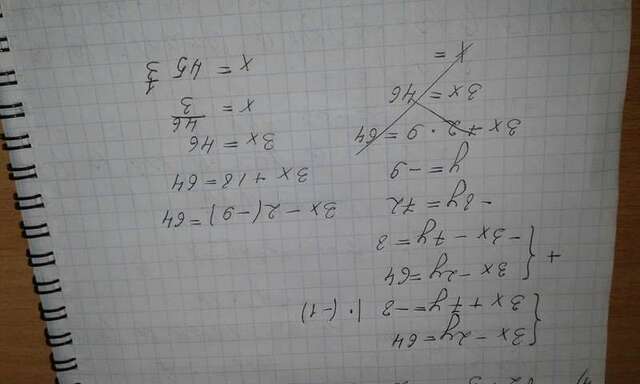 4)
3x - 2y = 64
3x + 7y = -8 | · (-1)
+ 3x - 2y = 64
-3x - 7y = 8
-8y = 72
y = -9
3x + 2 · 9 = 64
3x = 46
x =
3x - 2(-9) = 64
3x + 18 = 64
3x = 46
x = 46/3
x = 45 1/3